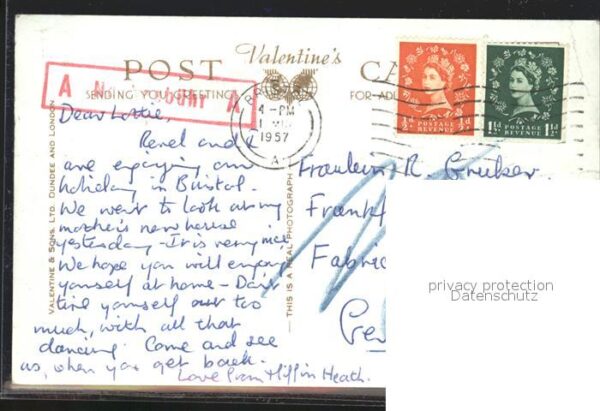 Valentine's
POST CA
SENDING YOU GREETING
FOR AD
A N gebühr A
4 - PM
1957
A
½d POSTAGE REVENUE ½d
1½d POSTAGE REVENUE 1½d
VALENTINE & SONS, LTD. DUNDEE AND LONDON
THIS IS A REAL PHOTOGRAPH
Dear Lottie,
and I
are enjoying our
holiday in Bristol.
We went to look at my
mother's new house
yesterday - It is very nice
We hope you will enjoy
yourself at home - Don't
tire yourself out too
much, with all that
dancing. Come and see
us, when you get back.
Love from Heath.
Fraulein R. Gruber.
Frankf
Fabric
Ger
privacy protection
Datenschutz